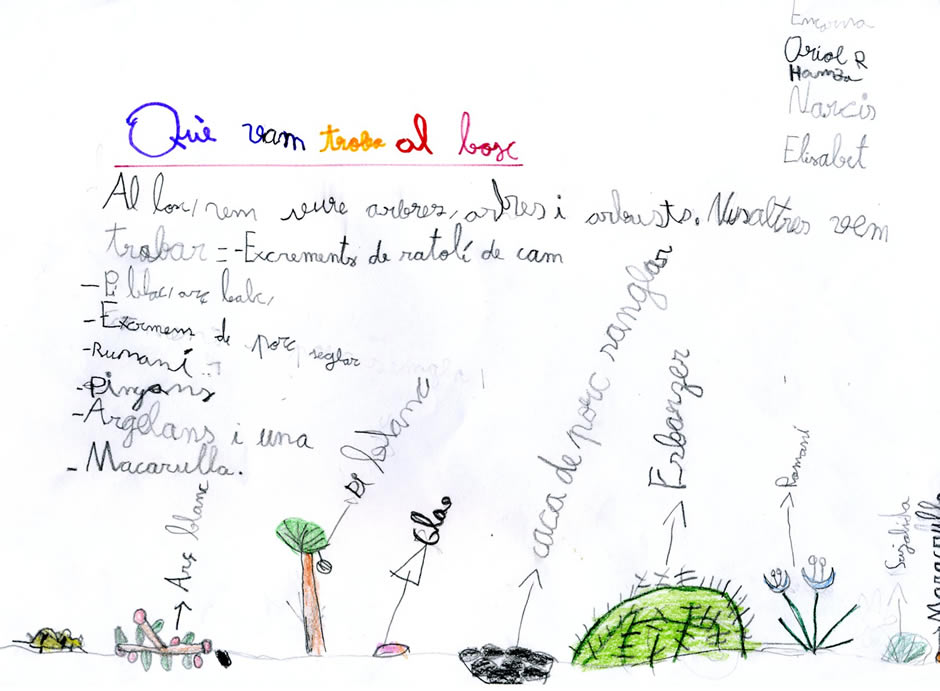 Encarna
Oriol R
Hamza
Narcís
Elisabet
Què vam troba al bosc
Al vem veure arbres, arbres i arbusts. Nusaltres vem
trobar = - Excrements de ratolí de cam
- Pi blac, arç balc,
- Excrmens de porc seglar
- Rumaní
- Pinyons
- Argelans i una
- Macarulla.
Arç blanc
Pi blanc
Gla
caca de porc sanglar
Erbanzer
Romaní
Maracrulla